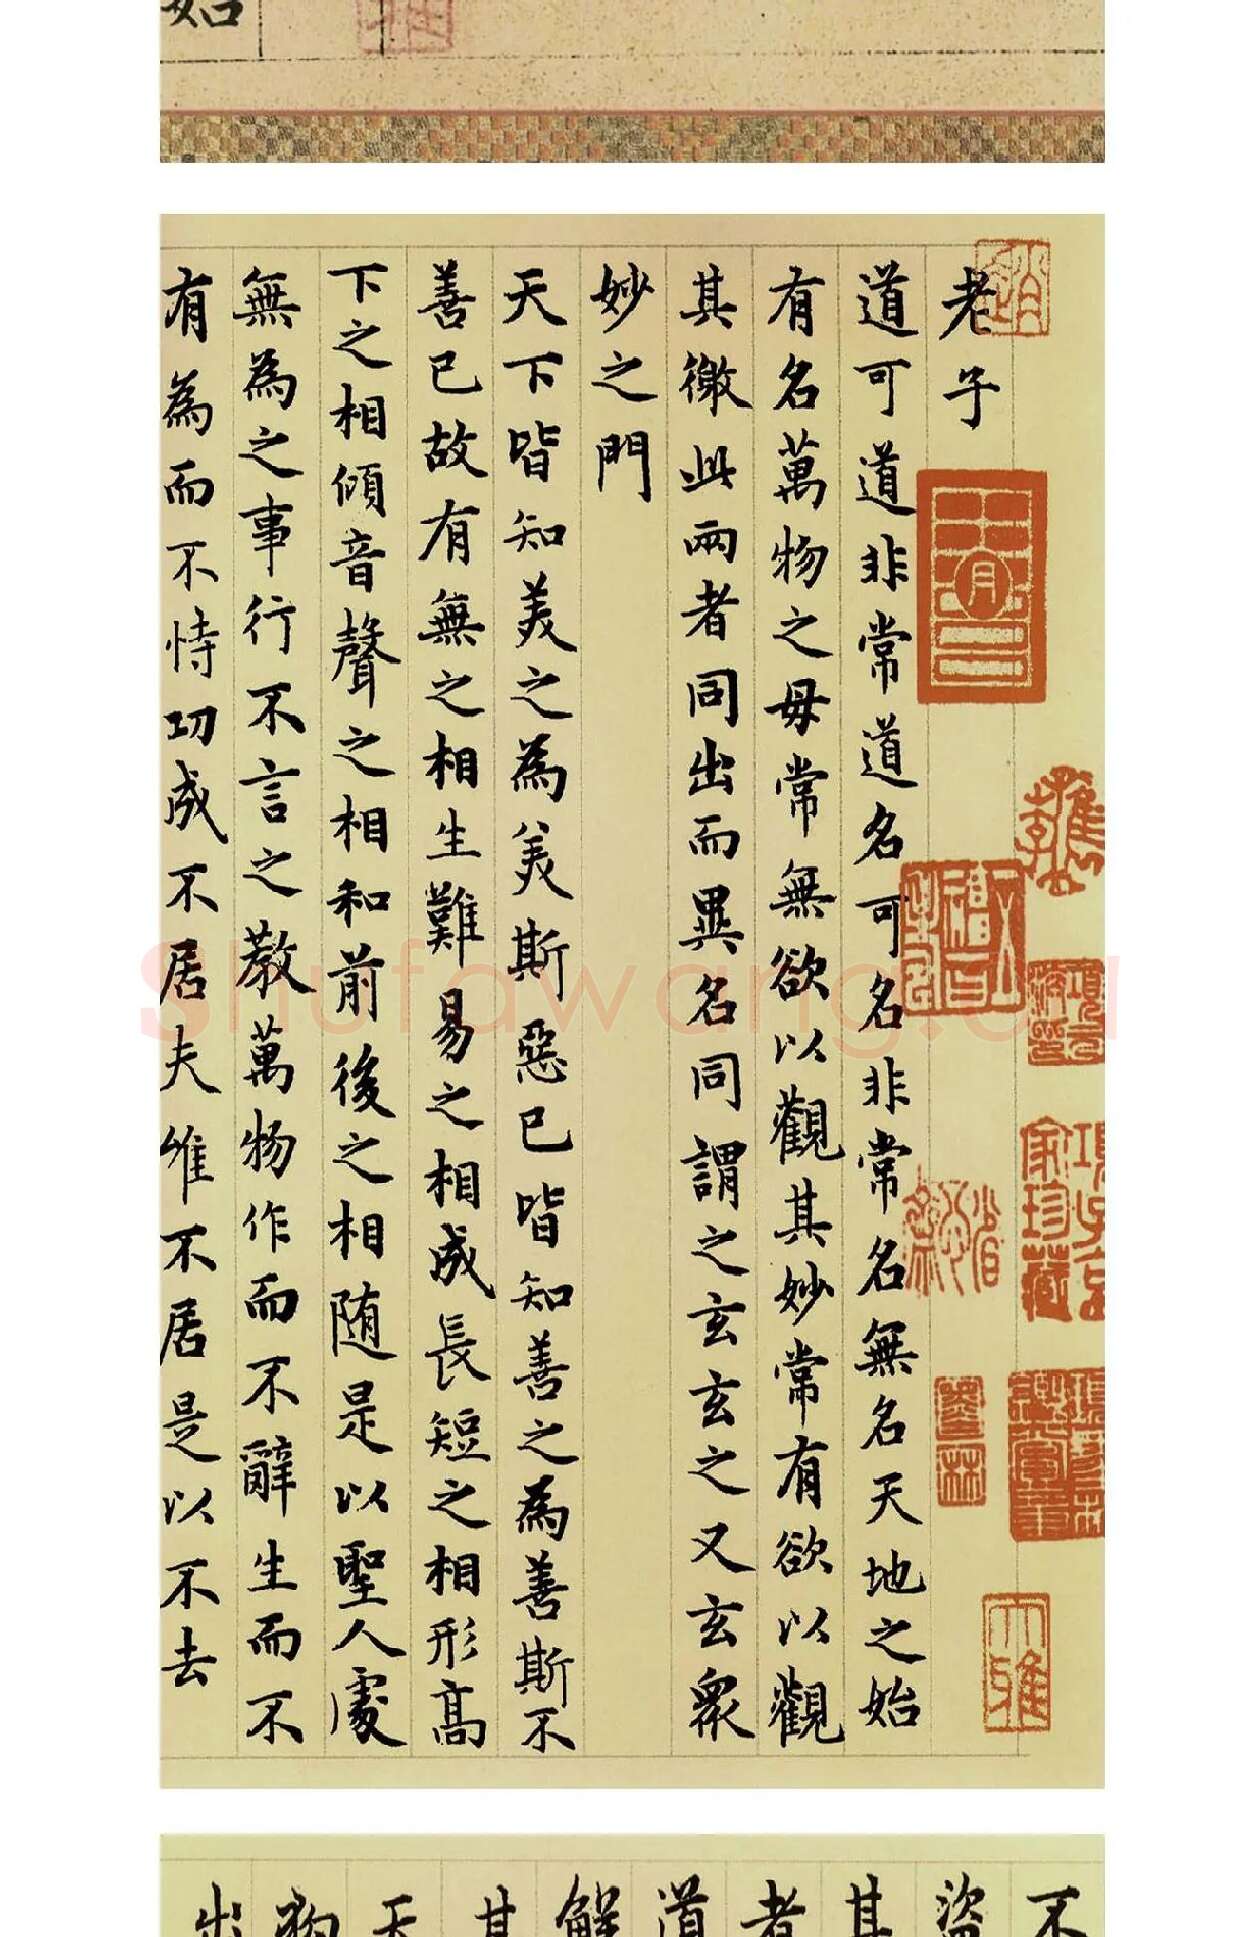 如
老子
道可道非常道名可名非常名無名天地之始
有名萬物之母常無欲以觀其妙常有欲以觀
其徼此兩者同出而異名同謂之玄玄之又玄衆
妙之門
天下皆知美之為美斯惡已皆知善之為善斯不
善已故有無之相生難易之相成長短之相形高
下之相傾音聲之相和前後之相随是以聖人處
無為之事行不言之教萬物作而不辭生而不
有為而不恃功成不居夫惟不居是以不去
大雅
項子京
家珍藏
shufawang.cn
不
盜
其
者
道
解
其
天
物
出